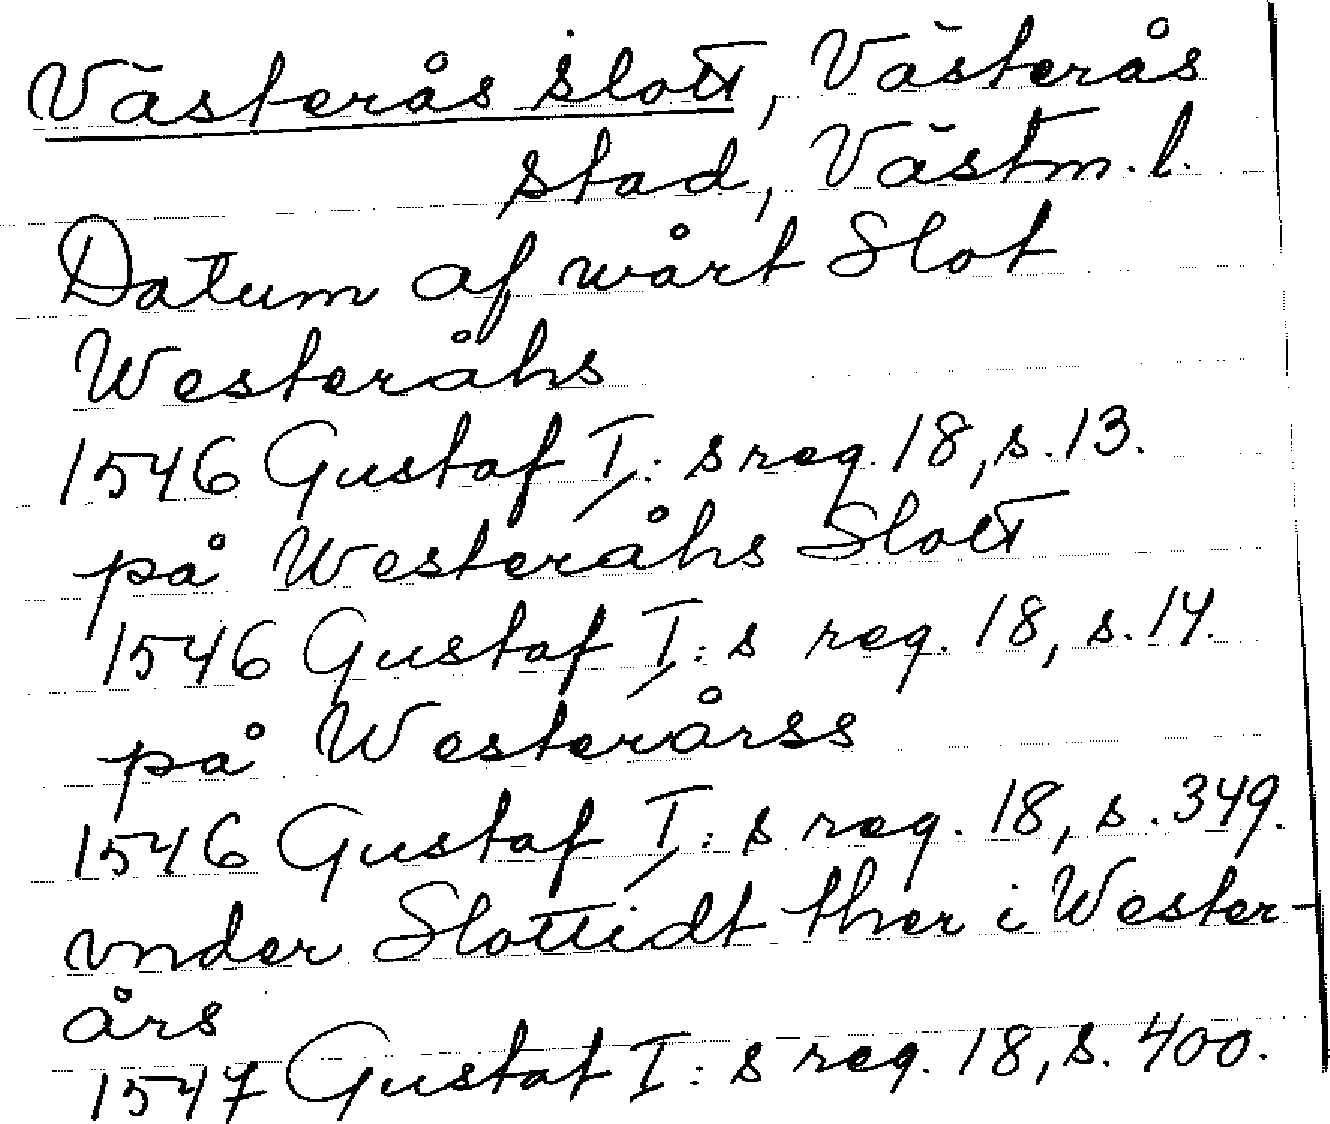 Västerås slott, Västerås
stad, Västm. l.
Datum af wårt Slot
Westeråhs
1546 Gustaf I: s reg. 18, s. 13.
på Westeråhs Slott
1546 Gustaf I: s reg. 18, s. 14.
på Westerårss
1546 Gustaf I: s reg. 18, s. 349.
vnder Slottidt ther i Wester-
års
1547 Gustaf I: s reg. 18, s. 400.